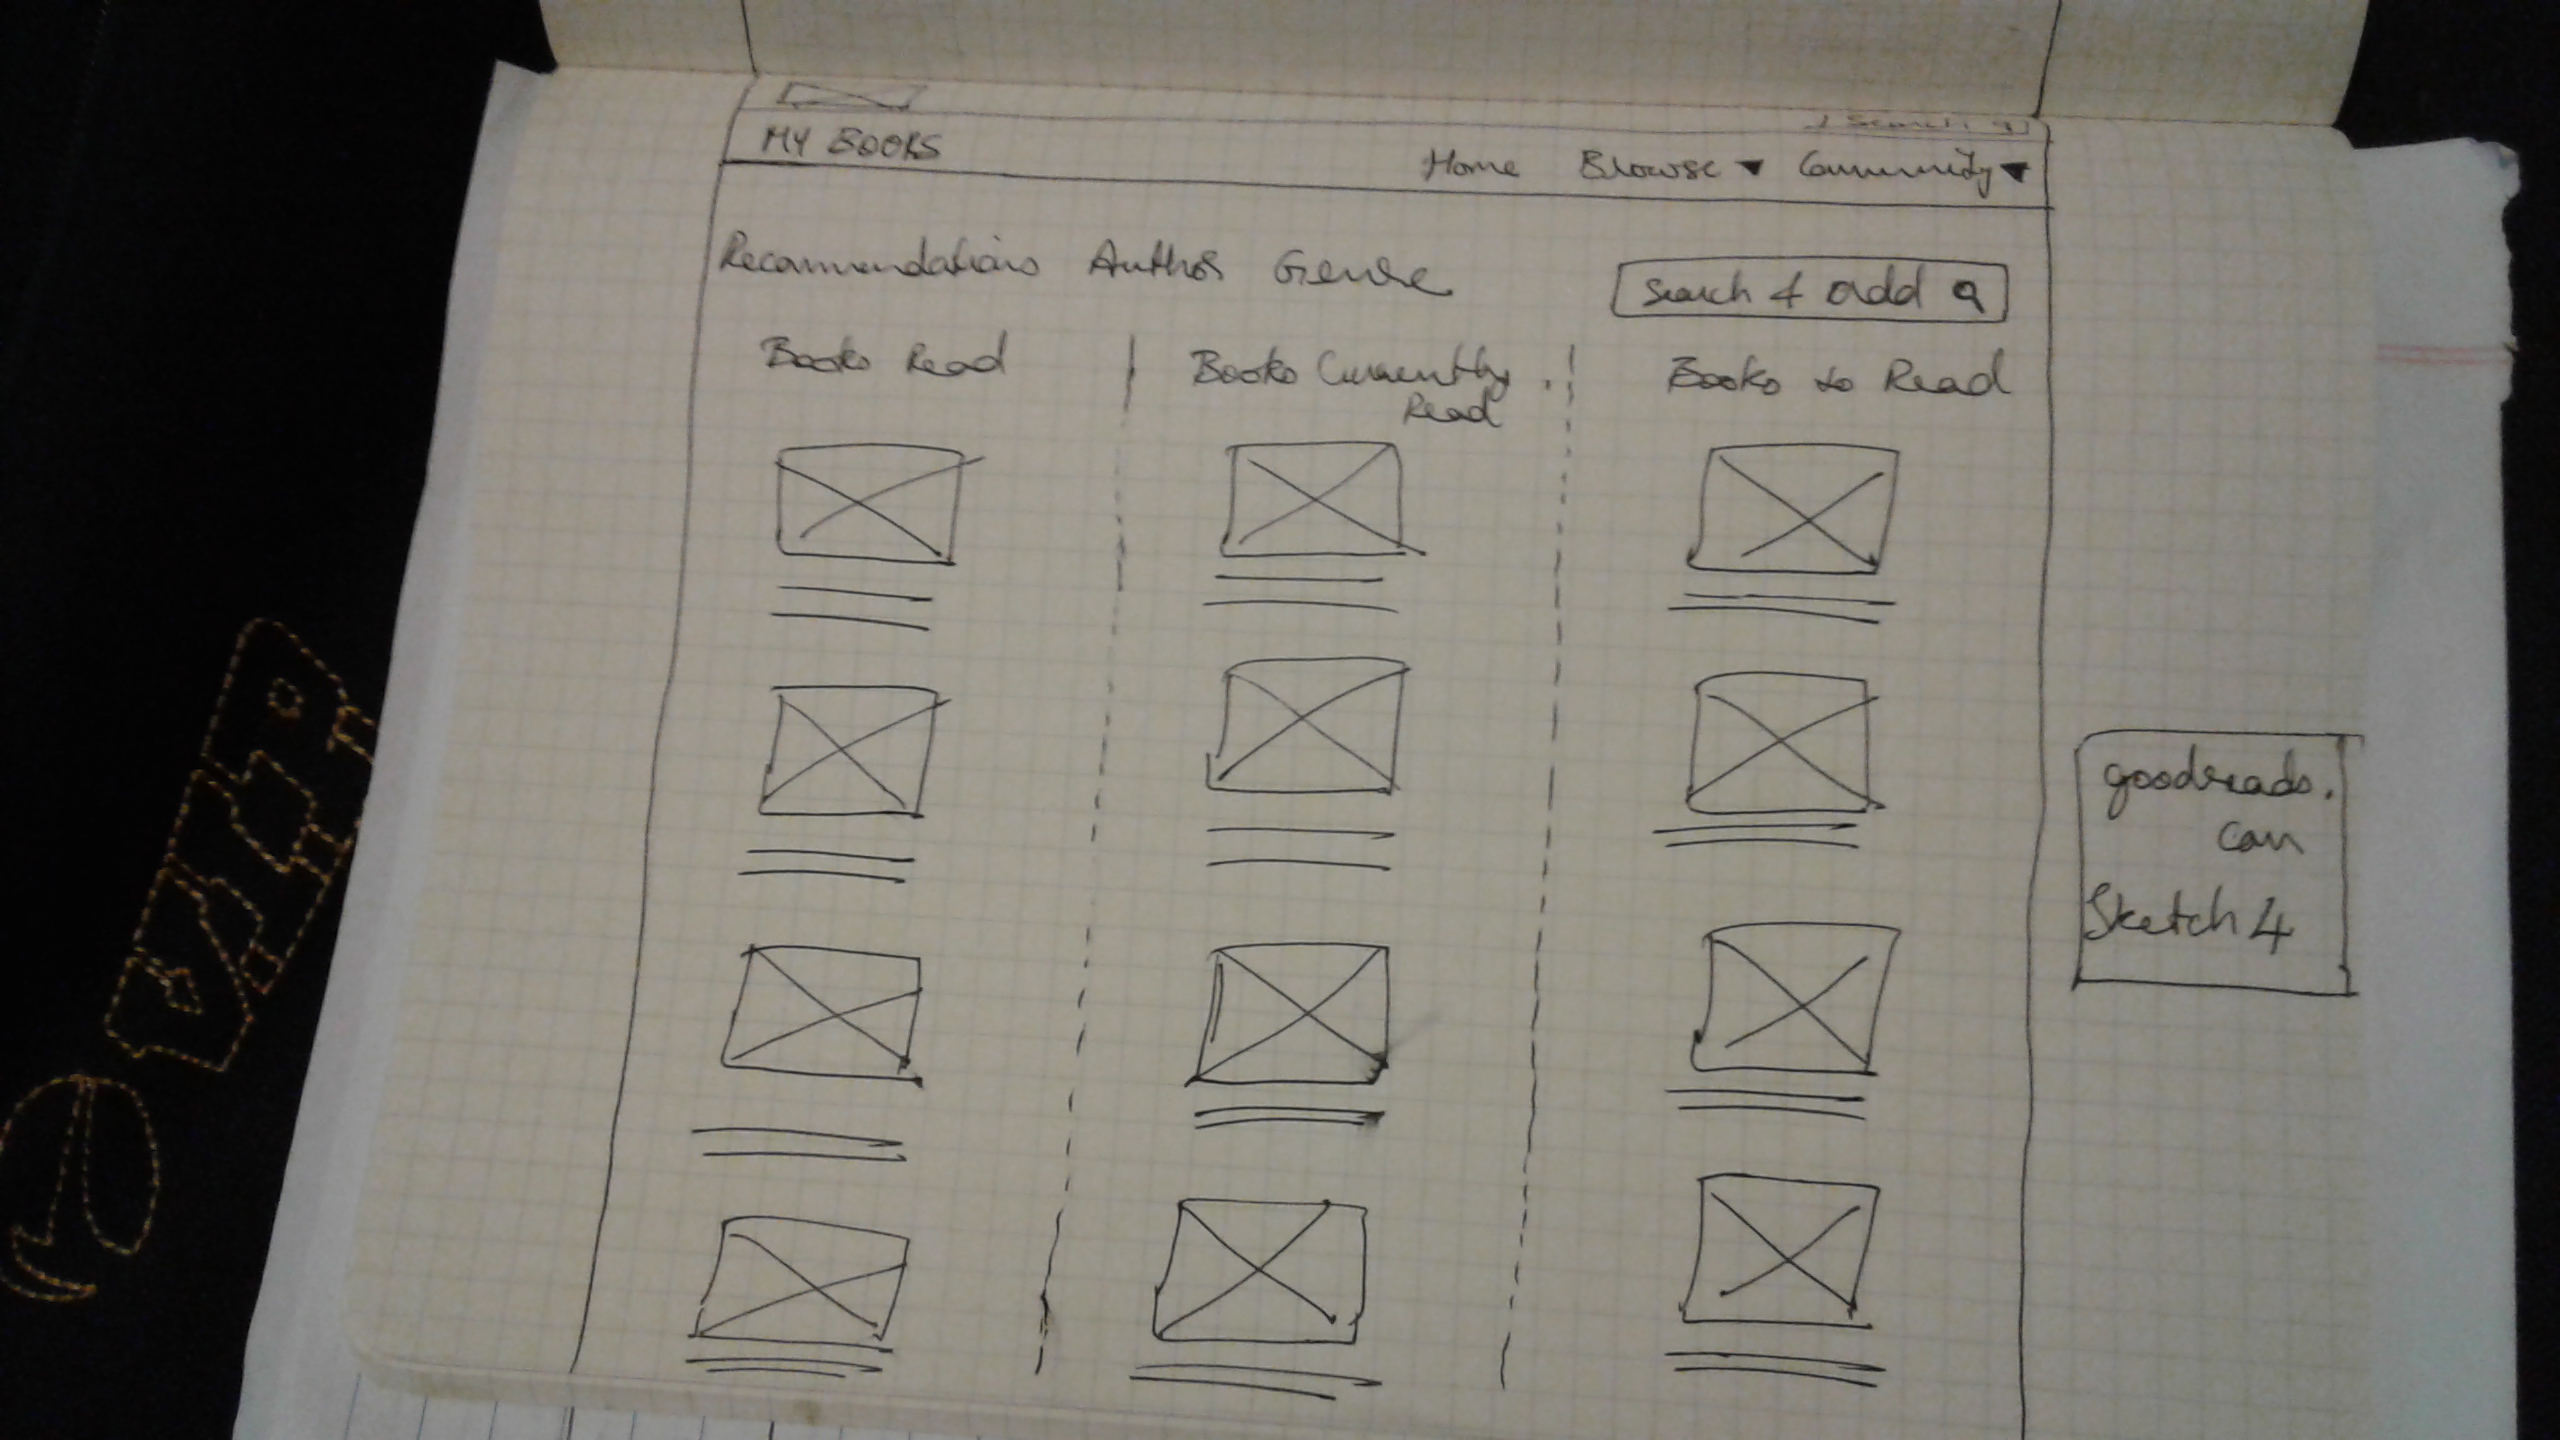 Search
MY BOOKS
Home Browse ▼ Community ▼
Recommendations Author Genre
Search & Add
Books Read
Books Currently
Read
Books to Read
goodreads.
com
Sketch 4